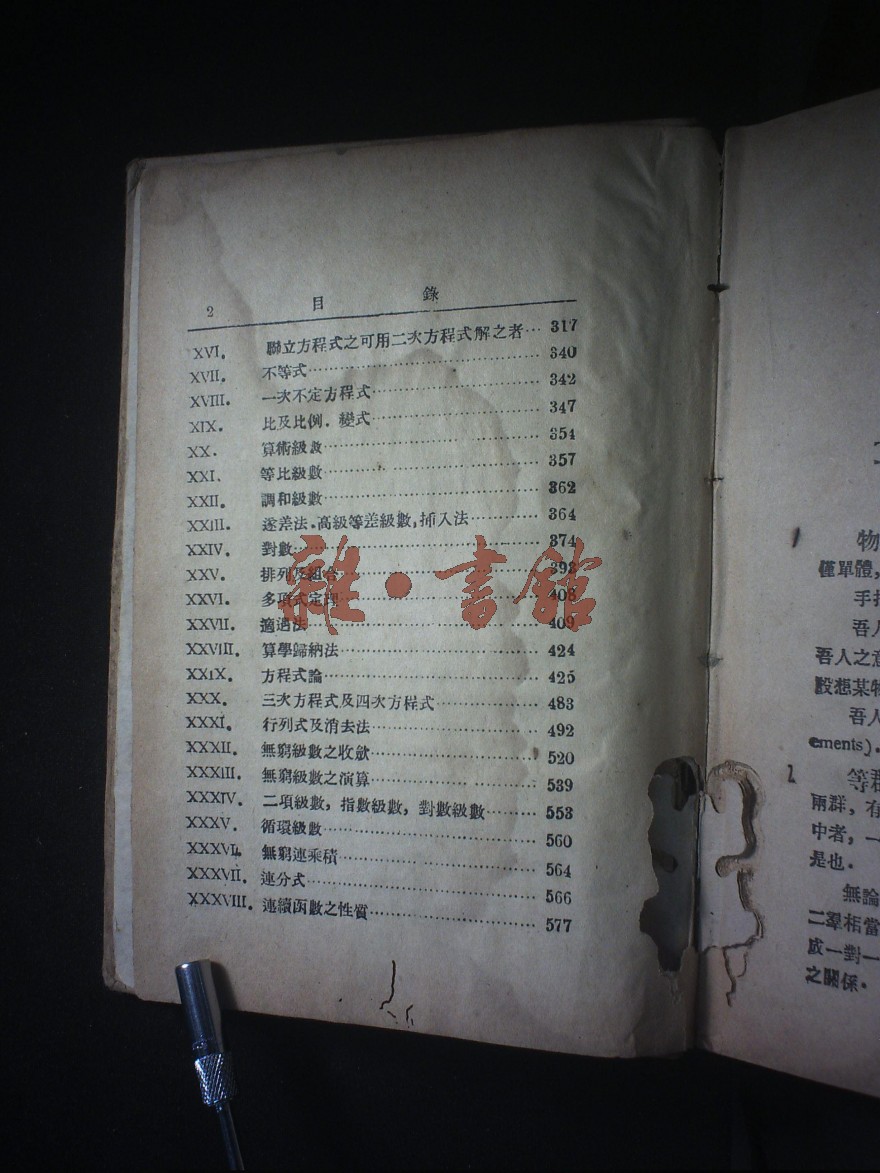 2 目 錄
XVI. 聯立方程式之可用二次方程式解之者… 317
XVII. 不等式…… 340
XVIII. 一次不定方程式…… 342
XIX. 比及比例．變式…… 347
XX. 算術級數…… 354
XXI. 等比級數…… 357
XXII. 調和級數…… 362
XXIII. 逐差法．高級等差級數，插入法…… 364
XXIV. 對數…… 374
XXV. 排列及組合…… 393
XXVI. 多項式定理…… 408
XXVII. 適遇法…… 409
XXVIII. 算學歸納法…… 424
XXIX. 方程式論…… 425
XXX. 三次方程式及四次方程式…… 483
XXXI. 行列式及消去法…… 492
XXXII. 無窮級數之收歛…… 520
XXXIII. 無窮級數之演算…… 539
XXXIV. 二項級數，指數級數，對數級數…… 553
XXXV. 循環級數…… 560
XXXVI. 無窮連乘積…… 564
XXXVII. 連分式…… 566
XXXVIII. 連續函數之性質…… 577
雜·書館
1 物
僅單體，
手指
吾人
吾人之意
設想某物
吾人
ements).
2 等群
兩群，有
中者，一
是也．
無論
二羣相當
成一對一
之關係．